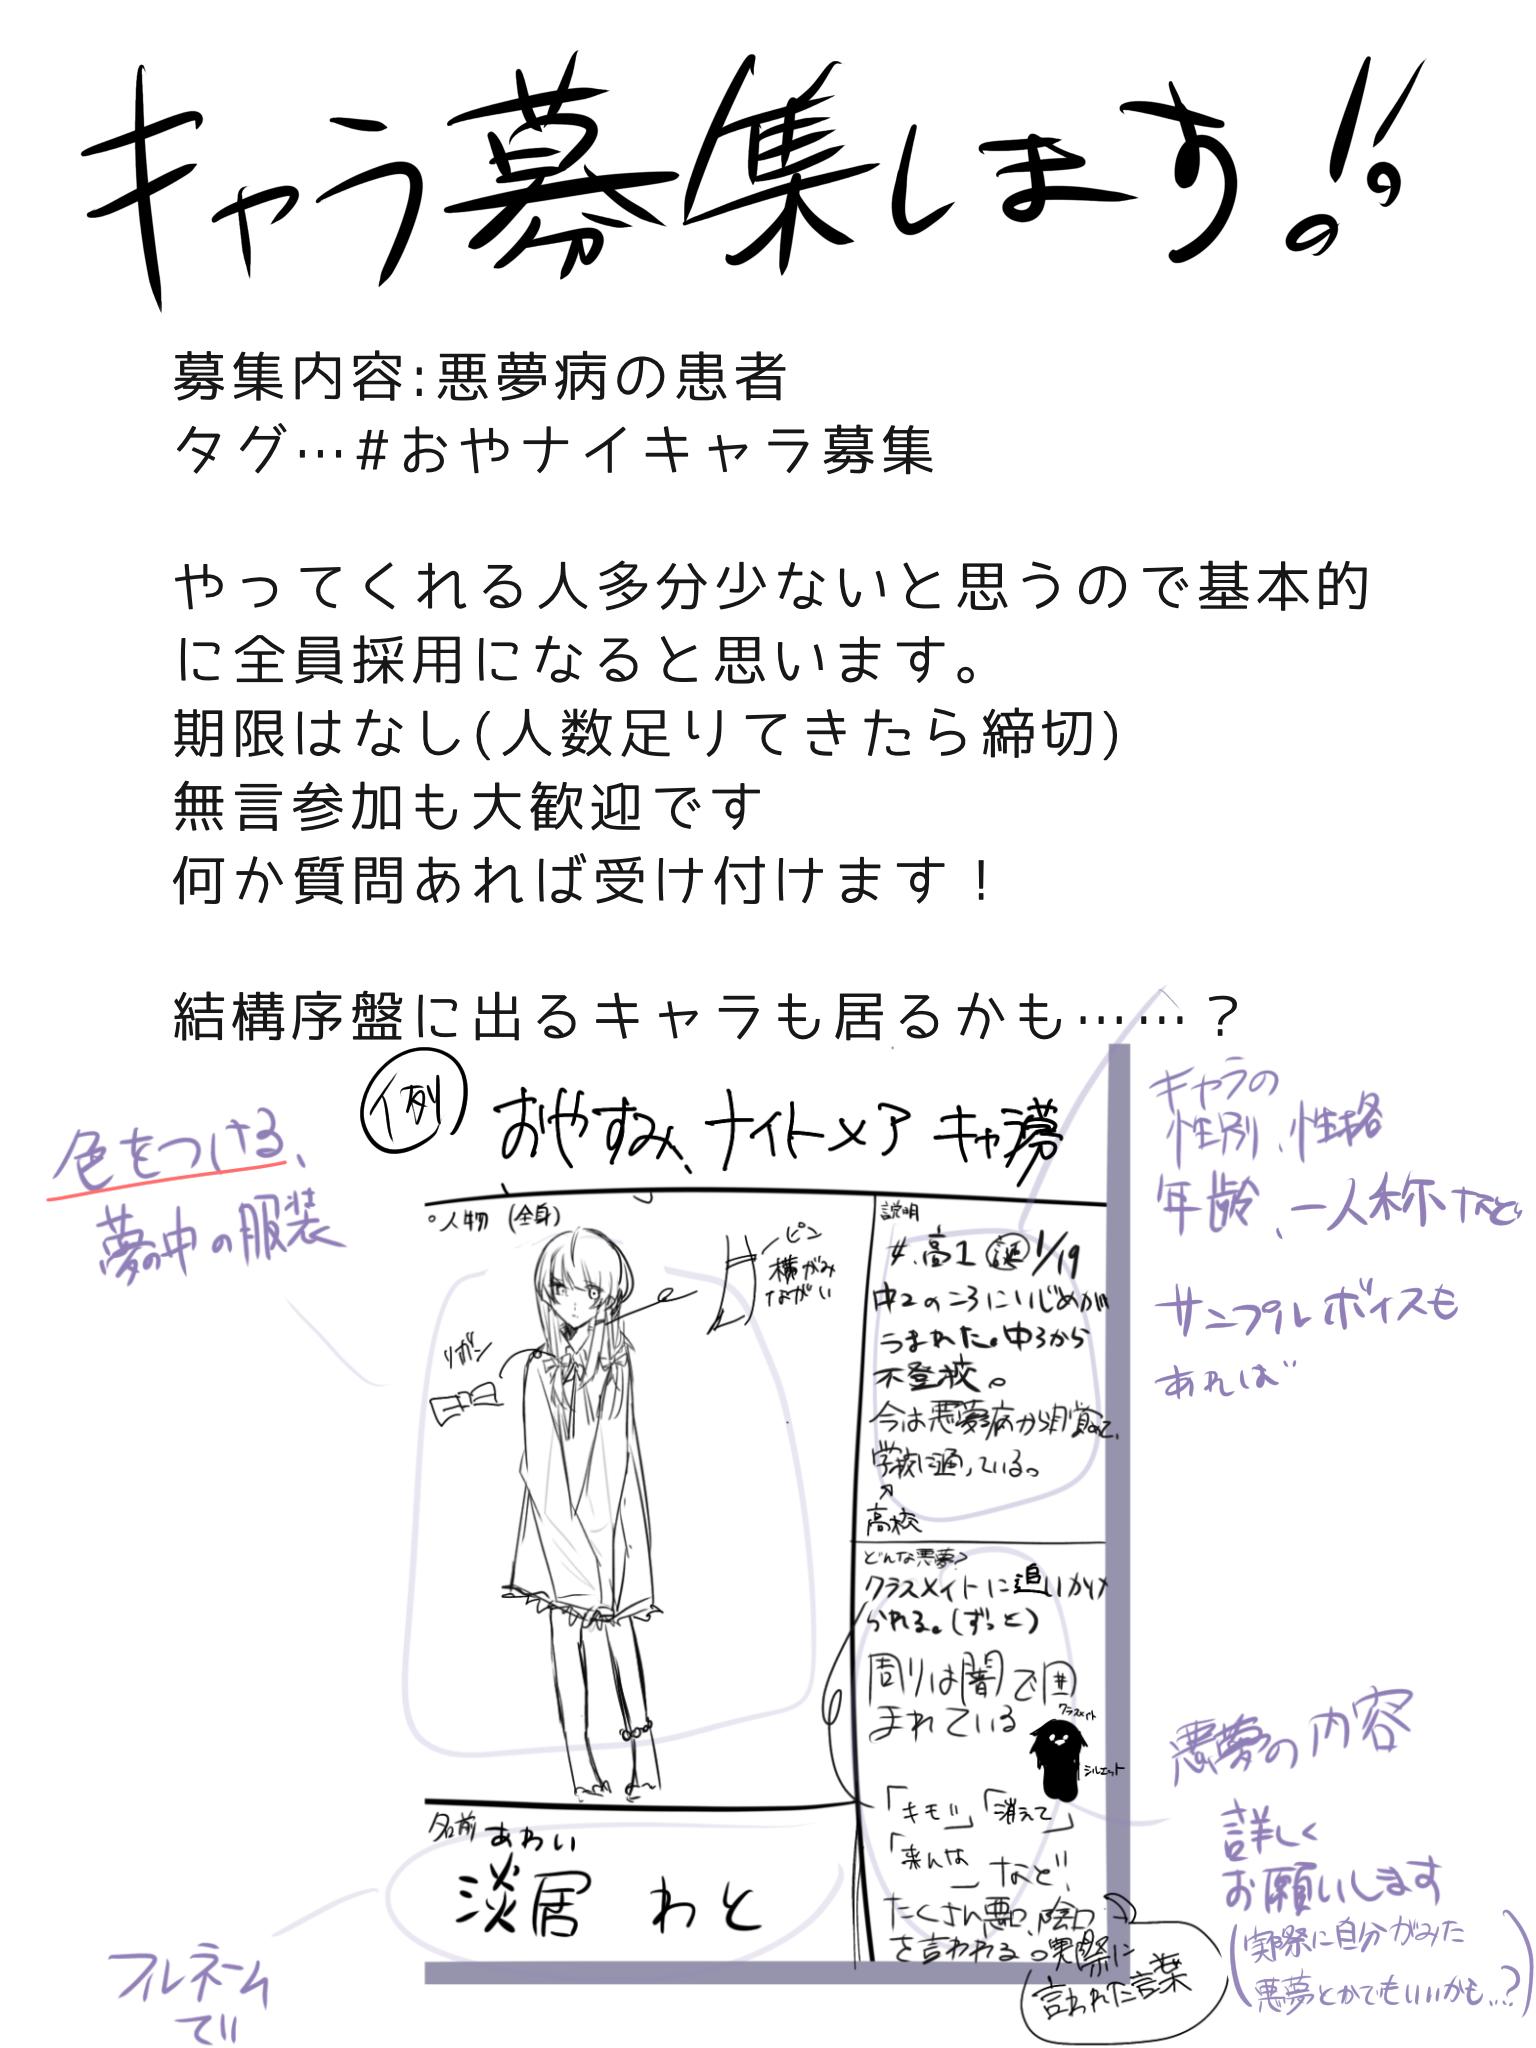 キャラ募集します!!
募集内容:悪夢病の患者
タグ…#おやナイキャラ募集
やってくれる人多分少ないと思うので基本的
に全員採用になると思います。
期限はなし(人数足りてきたら締切)
無言参加も大歓迎です
何か質問あれば受け付けます！
結構序盤に出るキャラも居るかも……？
例
おやすみ、ナイトメア キャラ募
色をつける、
夢中の服装
キャラの
性別、性格
年齢、一人称など
サンプルボイスも
あれば
人物(全身)
ピン
横がみ
ながい
リボン
説明
高1 誕 1/19
中2のころにいじめが
うまれた。中3から
不登校。
今は悪夢病から目覚めて、
学校に通っている。
高校
どんな悪夢?
クラスメイトに追いかけ
られる。(ずっと)
周りは闇で囲
まれている
クラスメイト
シルエット
「キモい」「消えて」
「来んな」など
たくさん悪口、陰口
を言われる。実際に
言われた言葉
名前
あわい
淡居 わと
フルネーム
で!!
悪夢の内容
詳しく
お願いします
(実際に自分がみた
悪夢とかでもいいかも..?)